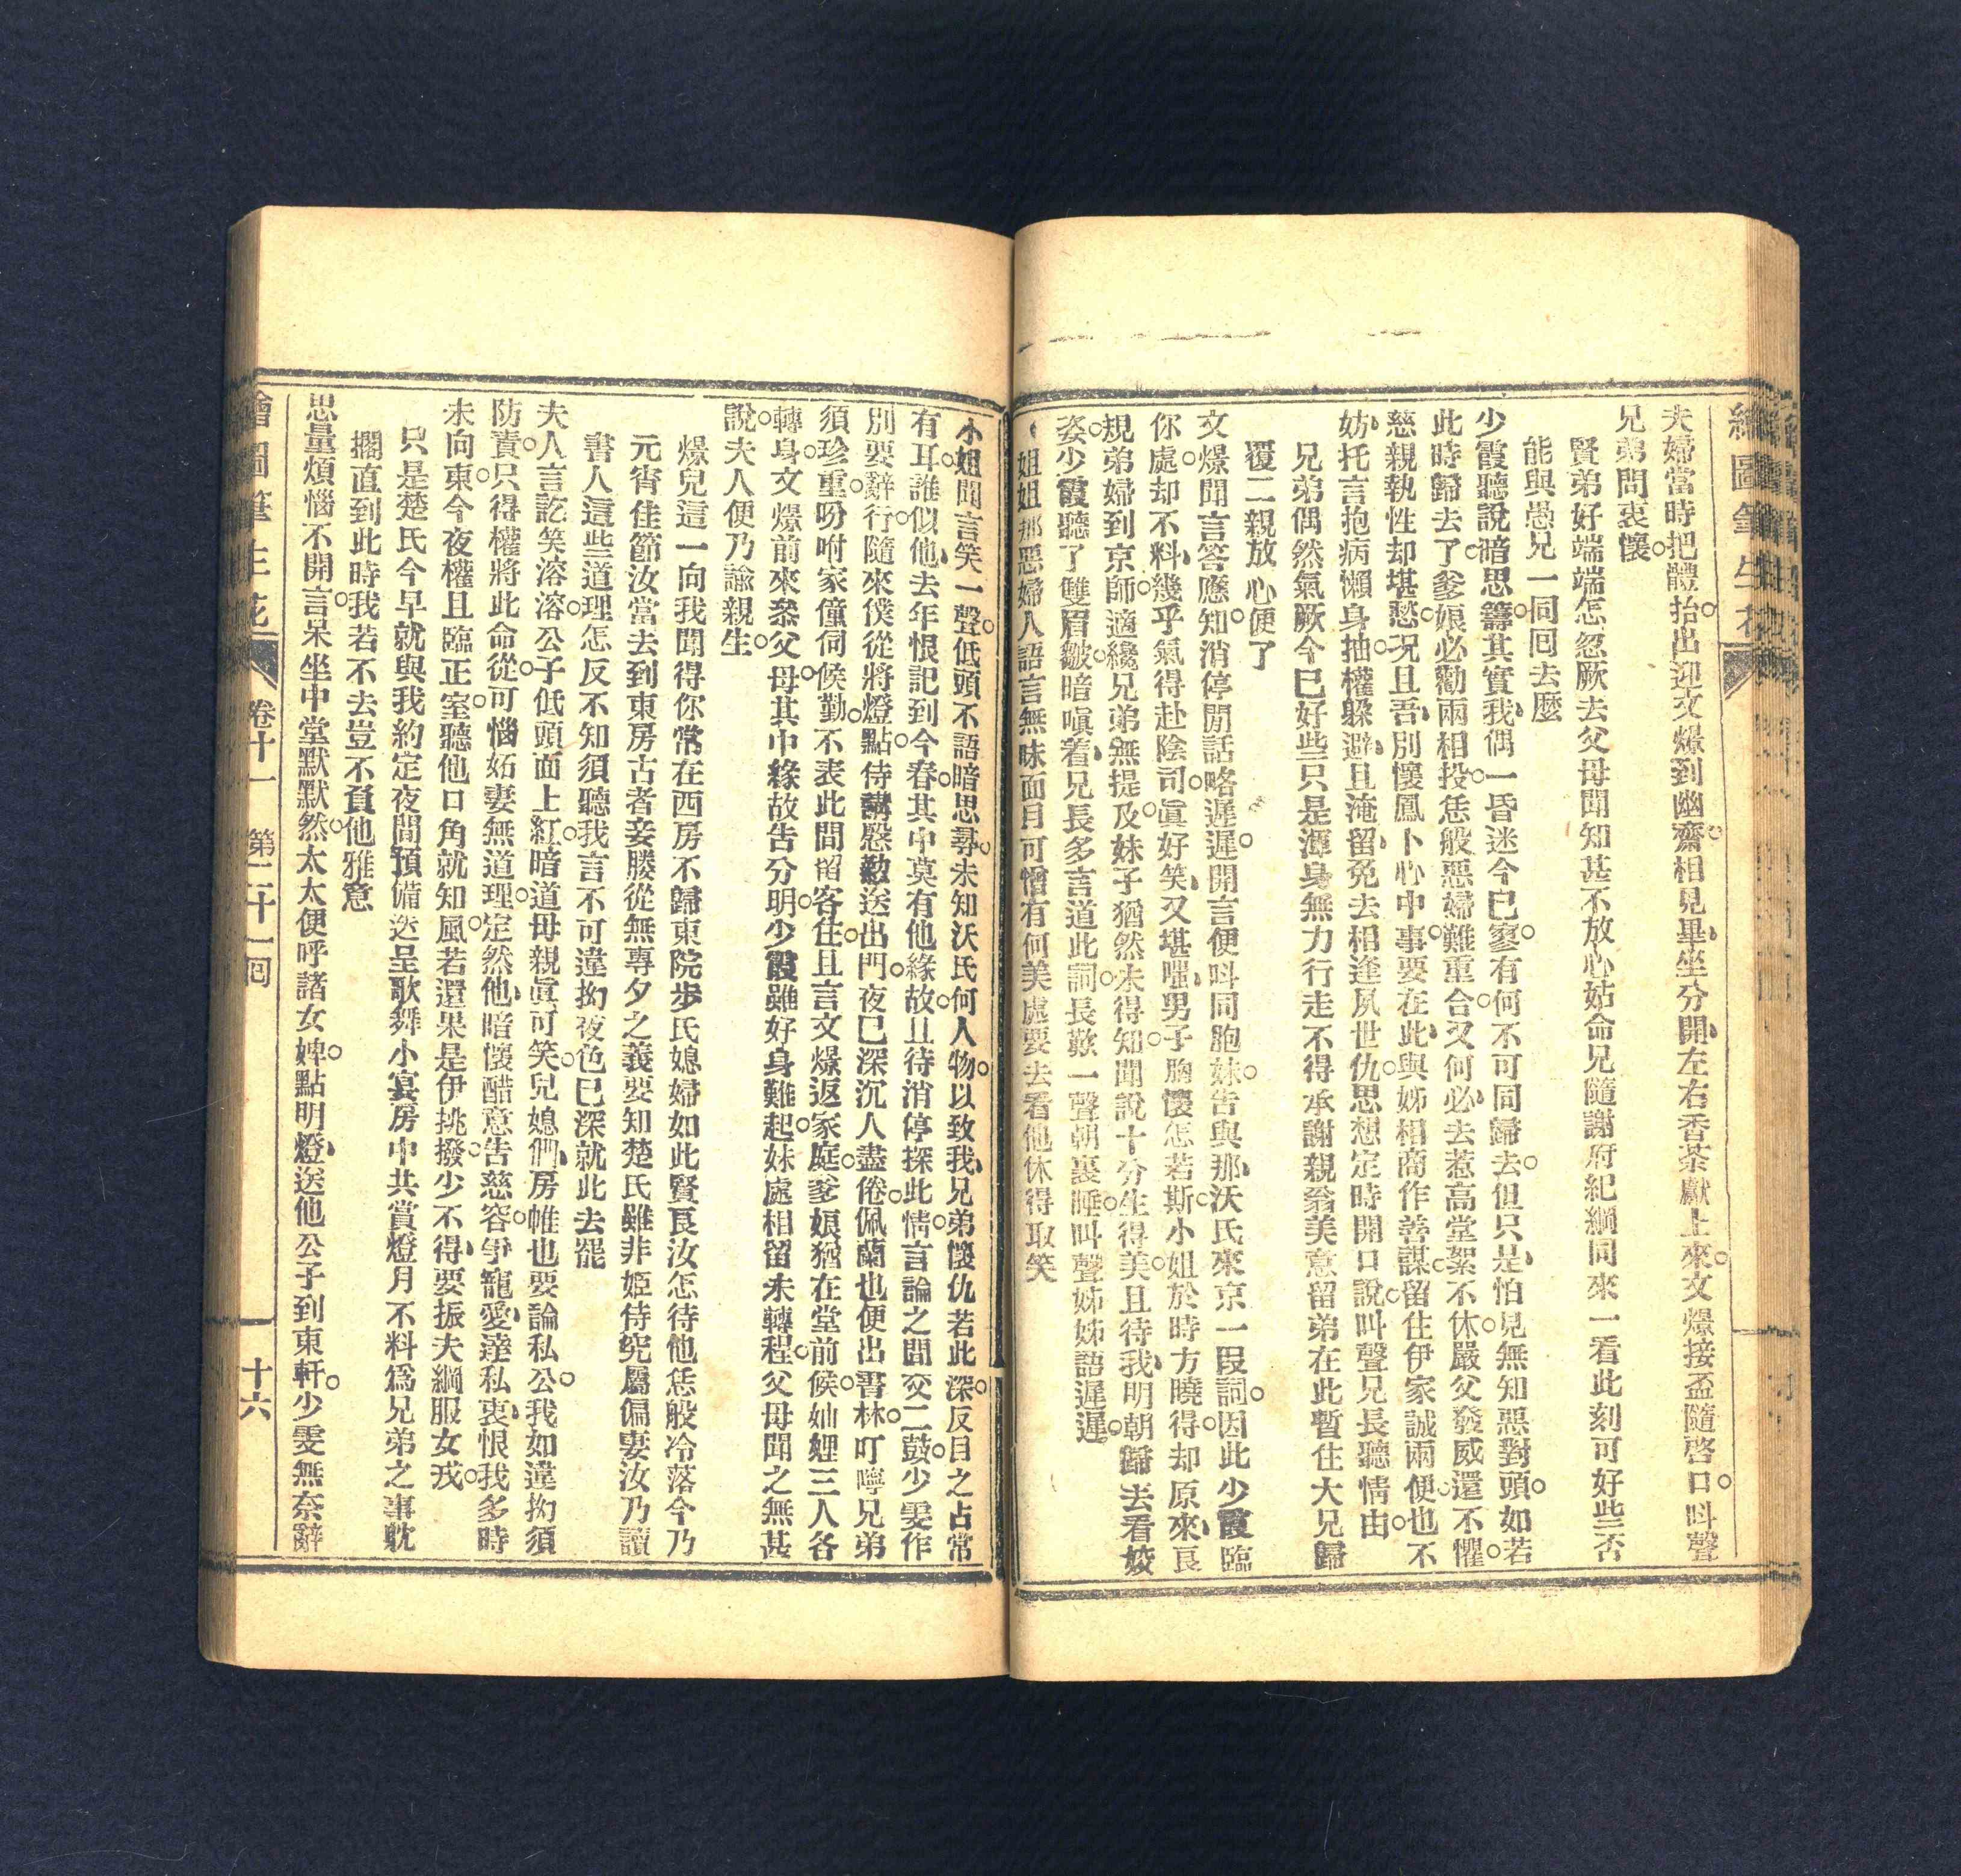 繪圖筆生花
夫婦當時把體抬。出迎文㷫到幽齋。相見畢、坐分開、左右香茶獻上來。文㷫接盃隨啓口。呌聲
兄弟問衷懷。
賢弟好端端怎忽厥去父母聞知甚不放心姑命兄隨謝府紀綱同來一看此刻可好些否
能與愚兄一同回去麼
少霞聽說暗思籌。其實我、偶一昏迷今已寥。有何不可同歸去。但只是、怕見無知惡對頭。如若
此時歸去了。爹娘必勸兩相投。恁般惡婦難重合。又何必、去惹高堂絮不休。嚴父發威還不懼。
慈親執性却堪愁。况且吾、別懷鳳卜心中事。要在此、與姊相商作善謀。留住伊家誠兩便。也不
妨、托言抱病懶身抽。權躲避、且淹留、免去相逢夙世仇。思想定時開口說。呌聲兄長聽情由。
兄弟偶然氣厥今已好些只是渾身無力行走不得承謝親翁美意留弟在此暫住大兄歸
覆二親放心便了
文㷫聞言答應。知消停閒話略遲遲。開言便呌同胞妹。告與那、沃氏來京一叚詞。因此少霞臨
你處。却不料、幾乎氣得赴陰司。眞好笑、又堪嗤、男子胸懷怎若斯。小姐於時方曉得。却原來、艮
規弟婦到京師。適纔兄弟無提及。妹子猶然未得知。聞說十分生得美。且待我、明朝歸去看姣
姿。少霞聽了雙眉皺。暗嗔着、兄長多言道此詞。長歎一聲朝裏睡。呌聲姊姊語遲遲。
姐姐那惡婦人語言無味面目可憎有何美處要去看他休得取笑
小姐聞言笑一聲。低頭不語暗思尋。未知沃氏何人物。以致我、兄弟懷仇若此深。反目之占常
有耳。誰似他、去年恨記到今春。其中莫有他緣故。且待消停探此情。言論之間交二鼓。少雯作
別要辭行。隨來僕從將燈點。侍講慇懃送出門。夜已深沉人盡倦。佩蘭也便出書林。叮嚀兄弟
須珍重。吩咐家僮伺候勤。不表此間留客住。且言文㷫返家庭。爹娘猶在堂前候。妯娌三人各
轉身。文㷫前來叅父母。其中緣故告分明。少霞雖好身難起。妹處相留未轉程。父母聞之無甚
說。夫人便乃諭親生。
㷫兒這一向我聞得你常在西房不歸東院步氏媳婦如此賢良汝怎待他恁般冷落今乃
元宵佳節汝當去到東房古者妾媵從無專夕之義要知楚氏雖非姬侍究屬偏妻汝乃讀
書人這些道理怎反不知須聽我言不可違拗夜色已深就此去罷
夫人言訖笑溶溶。公子低頭面上紅。暗道母親眞可笑。兒媳們、房帷也要論私公。我如違拗須
防責。只得權將此命從。可惱妬妻無道理。定然他、暗懷醋意告慈容。爭寵愛、達私衷、恨我多時
未向東。今夜權且臨正室。聽他口角就知風。若還果是伊挑撥。少不得、要振夫綱服女戎。
只是楚氏今早就與我約定夜間預備迭呈歌舞小宴房中共賞燈月不料爲兄弟之事躭
擱直到此時我若不去豈不負他雅意
思量煩惱不開言。呆坐中堂默默然。太太便呼諸女婢。點明燈、送他公子到東軒。少雯無奈辭
繪圖筆生花 卷十一 第二十一回 十六